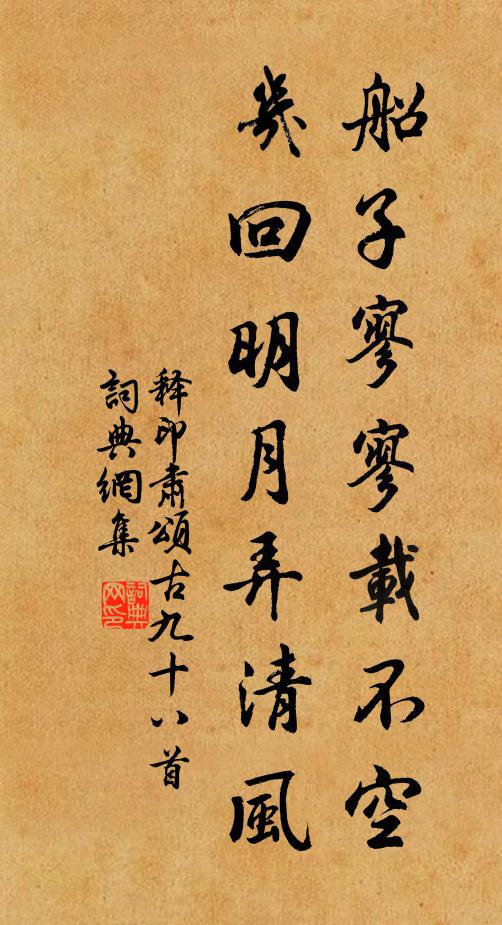 船子寥寥載不空
幾回明月弄清風
释印肅頌古九十八首
詞典網集
詞典网印